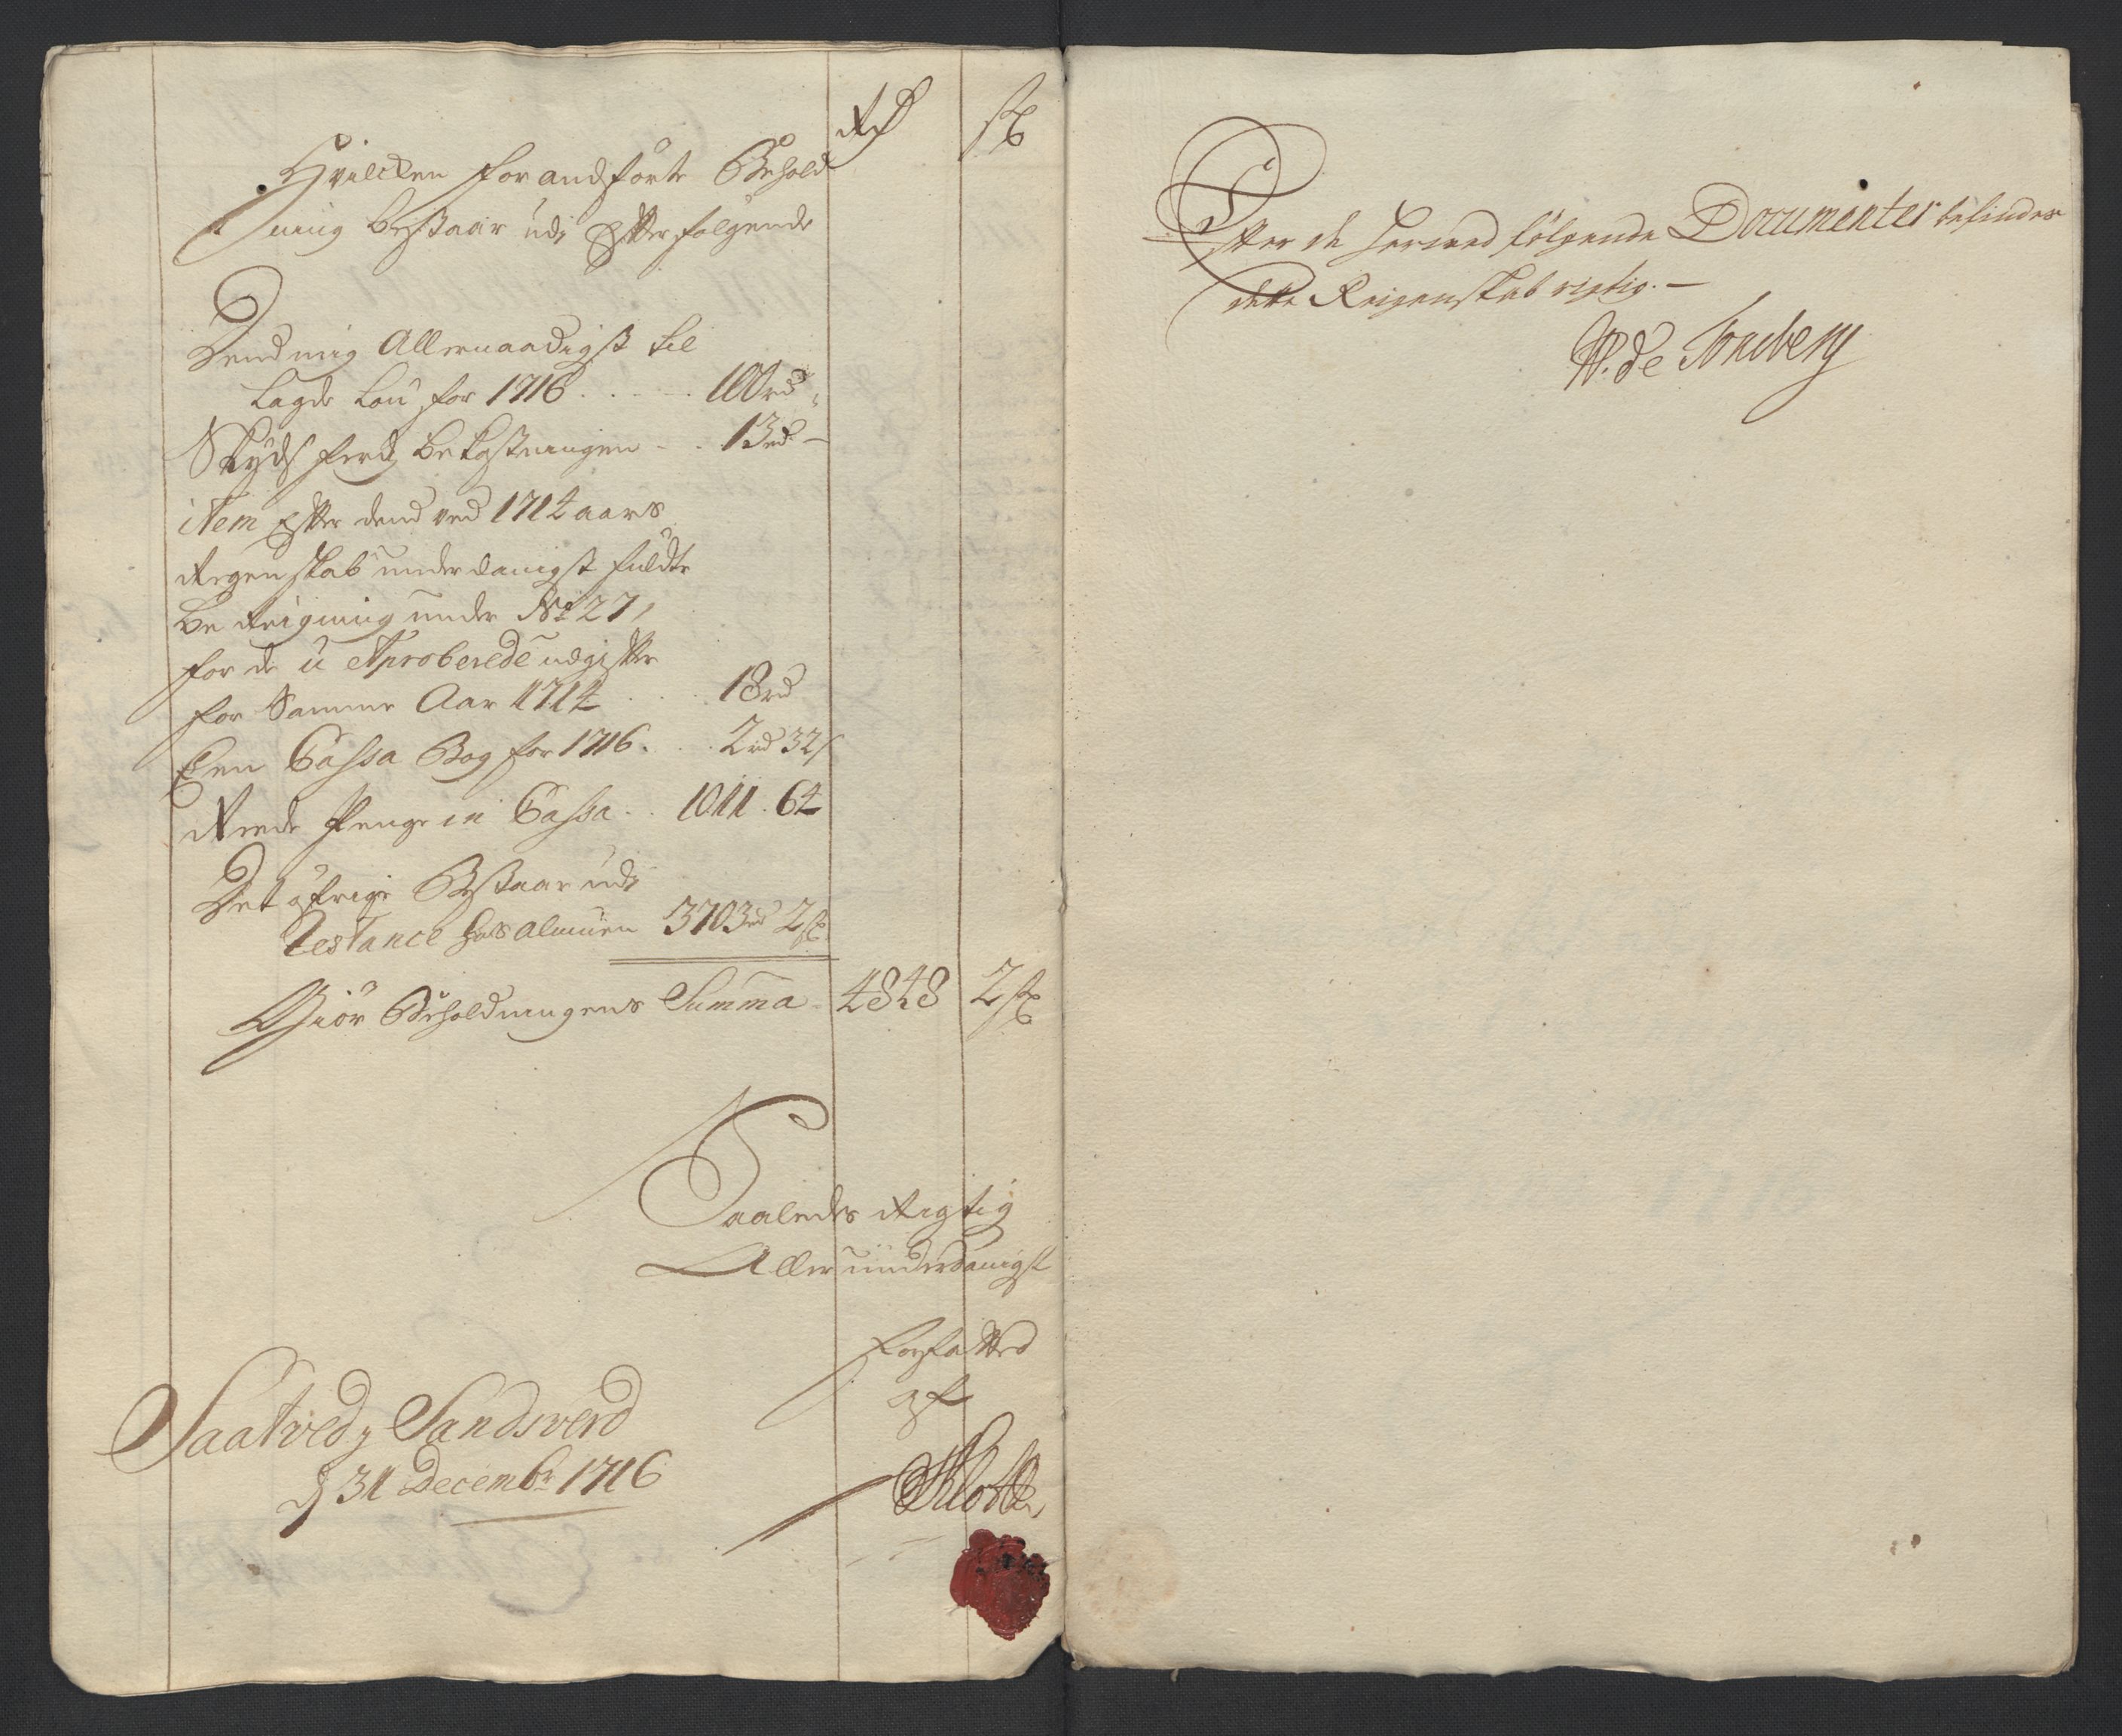 Rd ß
Hvilcken forandførte Behold
ning bestaar udi Efterfølgende
Dend mig Allernaadigst til
lagde Løn for 1716 . . . . 100 rd
Skyds ferds bekostningen . . 13 rd –
item Efter dend ved 1714 aars
Regenskab underdanigst fuldte
be Reigning under No 27,
for de u Aproberede udgifter
for Samme Aar 1714 . . . 18 rd
Een Cassa Bog for 1716 . . . 2 rd 32 s
Reede Penge in Cassa . . 1011 . 64
Det øfrige Bestaar udi
Restance hos almuen 3703 rd 2 ß
Giør Beholdningens Summa 4848 2 ß
Saaledes Rigtig
Allerunderdanigst
forfatted
af
Saatved y Sandsverd
d 31 Decembr 1716
Efter de hermed følgende Documenter befindes
dette Reigenskab rigtig. –
W. de Tonsberg